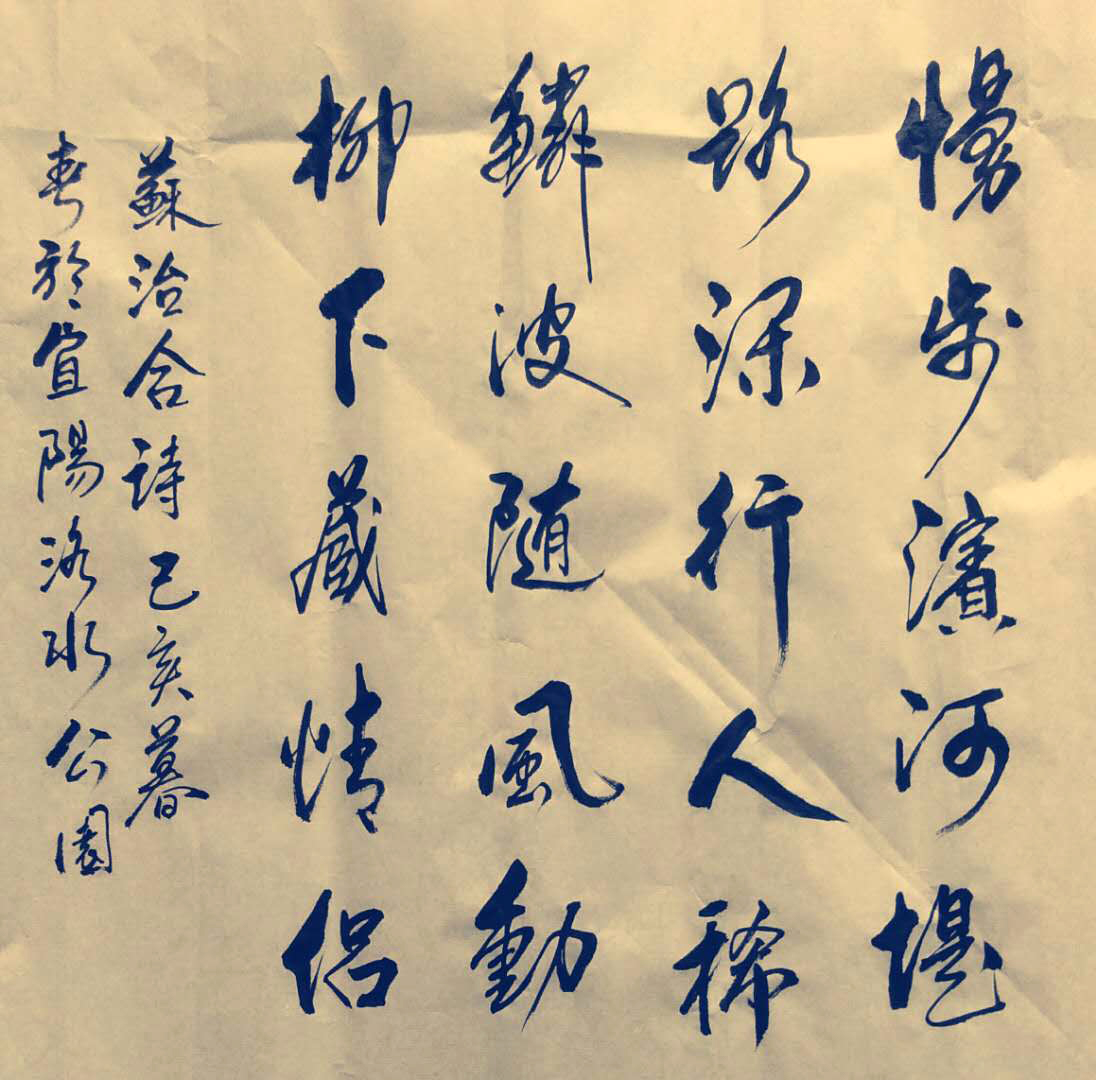 慢步濱河堤
路深行人稀
鱗波隨風動
柳下藏情侶
蘇治合詩己亥暮
春於宜陽洛水公園